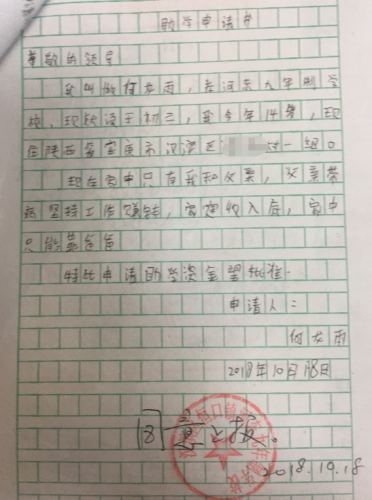 助学申请书
尊敬的领导
我叫做何龙雨，在河东九年制学
校，现就读于初三，我今年14岁，现
住陕西省安康市汉滨区 村一组。
现在家中只有我和父亲，父亲带
病坚持工作赚钱，家庭收入低，家中
只能靠爸爸
特此申请助学资金望批准.
申请人：
何龙雨
2018年10月18日
同意上报。
2018.10.18